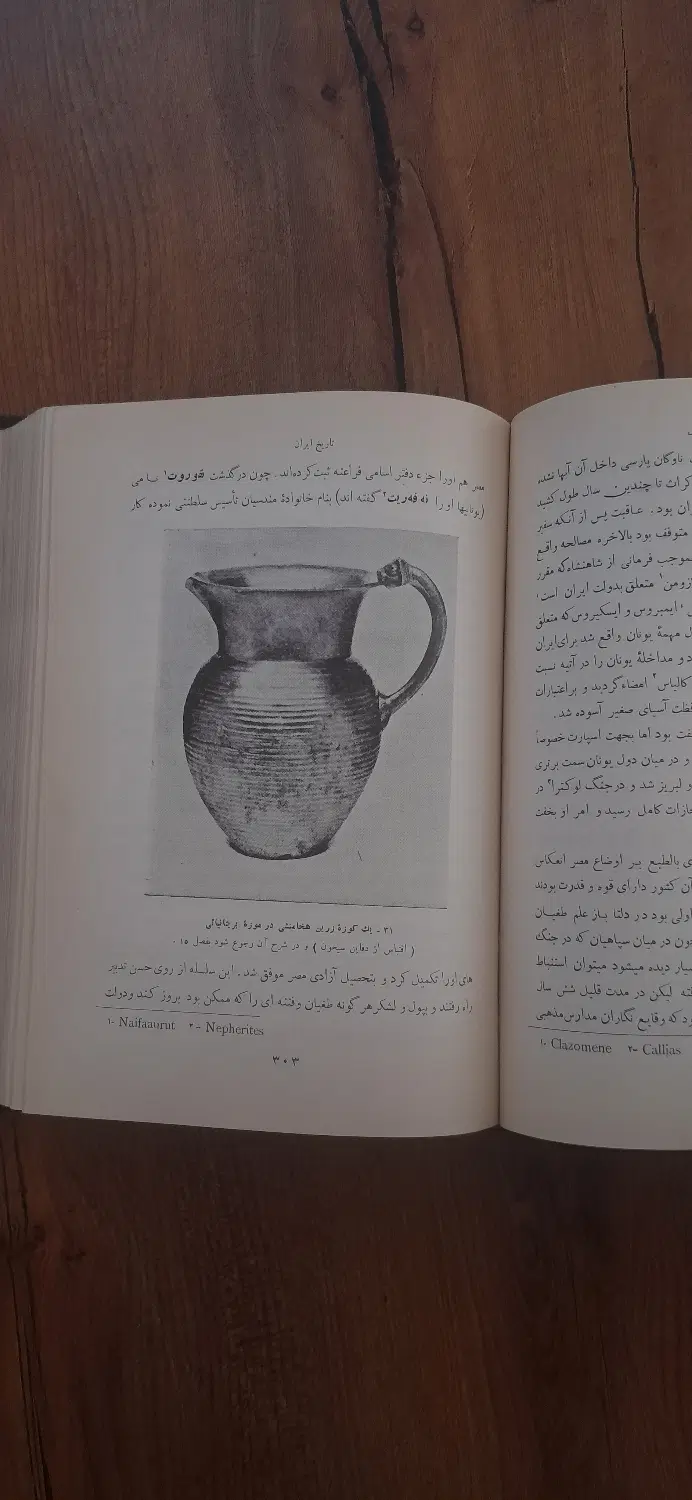 تاریخ ایران
مصر هم اورا جزء دفتر اسامی فراعنه ثبت کرده‌اند. چون درگذشت
(یونانیها اورا نه فه‌ریت۲ گفته اند) بنام خانوادهٔ مندسیان تأسیس سلطنتی نموده کار
۳۱ ـ یك کوزهٔ زرین هخامنشی در موزهٔ بریتانیائی
( اقتباس از دفاین سیحون ) و در شرح آن رجوع شود فصل ۱۵ .
های اورا تکمیل کرد و بتحصیل آزادی مصر موفق شد. این سلسله از روی حسن تدبیر
راه رفتند و بپول و لشکر هر گونه طغیان وفتنه ای را که ممکن بود بروز کند ودولت
۱- Naifaaurut ۲- Nepherites
۳۰۳
ناوگان پارسی داخل آن آبها نشده
کرات تا چندین سال طول کشید
ران بود. عاقبت پس از آنکه سفیر
متوقف بود بالاخره مصالحه واقع
موجب فرمانی از شاهنشاه که مقرر
زومن۱ متعلق بدولت ایران است؛
ایمبروس و ایسکیروس که متعلق
مهمهٔ یونان واقع شد برای ایران
د و مداخلهٔ یونان را در آتیه نسبت
کالیاس۲ امضاء گردید و بر اعتبارات
آسیای صغیر آسوده شد.
بود اما بجهت اسپارت خصوصاً
و در میان دول یونان سمت برتری
و لبریز شد و در جنگ لوکترا۳ در
کامل رسید و امر او بخفت
بالطبع بر اوضاع مصر انعکاس
آن کشور دارای قوه و قدرت بودند
اولی بود در دلتا باز علم طغیان
چون در میان سپاهیان که در جنگ
بسیار دیده میشود میتوان استنباط
لیکن در مدت قلیل شش سال
که وقایع نگاران مدارس مذهبی
۱- Clazomene ۲- Callias